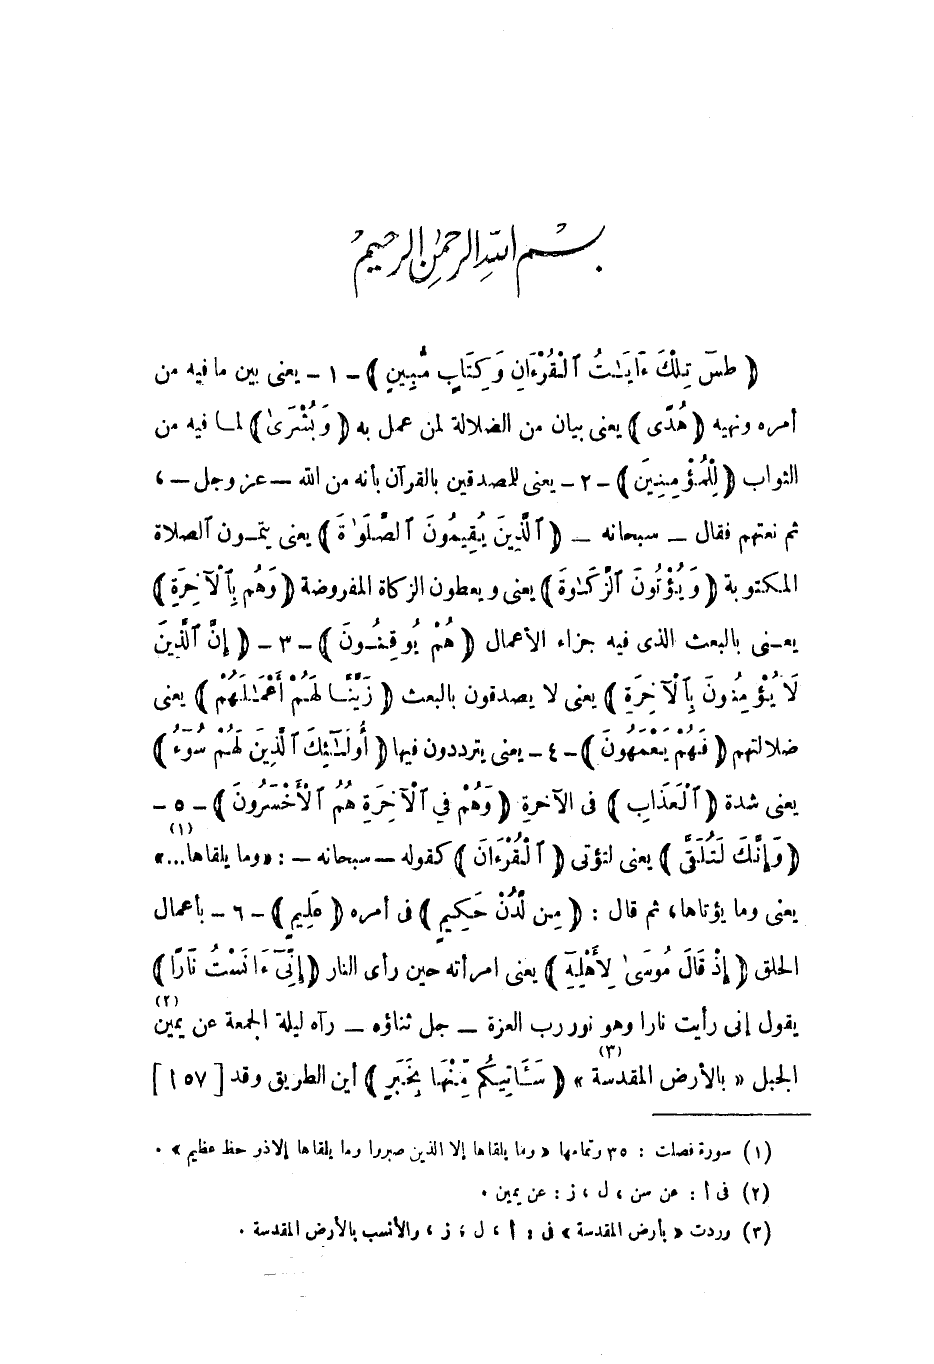 بسم الله الرحمن الرحيم
﴿ طسٓ تِلْكَ ءَايَـٰتُ ٱلْقُرْءَانِ وَكِتَابٍ مُّبِينٍ ﴾ ـ ١ ـ يعنى بين ما فيه من
أمره ونهيه ﴿ هُدًى ﴾ يعنى بيان من الضلالة لمن عمل به ﴿ وَبُشْرَىٰ ﴾ لما فيه من
الثواب ﴿ لِلْمُؤْمِنِينَ ﴾ ـ ٢ ـ يعنى للمصدقين بالقرآن بأنه من الله ـ عز وجل ـ ،
ثم نعتهم فقال ـ سبحانه ـ ﴿ ٱلَّذِينَ يُقِيمُونَ ٱلصَّلَوٰةَ ﴾ يعنى يتمون الصلاة
المكتوبة ﴿ وَيُؤْتُونَ ٱلزَّكَوٰةَ ﴾ يعنى ويعطون الزكاة المفروضة ﴿ وَهُم بِٱلْآخِرَةِ ﴾
يعنى بالبعث الذى فيه جزاء الأعمال ﴿ هُمْ يُوقِنُونَ ﴾ ـ ٣ ـ ﴿ إِنَّ ٱلَّذِينَ
لَا يُؤْمِنُونَ بِٱلْآخِرَةِ ﴾ يعنى لا يصدقون بالبعث ﴿ زَيَّنَّا لَهُمْ أَعْمَـٰلَهُمْ ﴾ يعنى
ضلالتهم ﴿ فَهُمْ يَعْمَهُونَ ﴾ ـ ٤ ـ يعنى يترددون فيها ﴿ أُولَـٰٓئِكَ ٱلَّذِينَ لَهُمْ سُوٓءُ ﴾
يعنى شدة ﴿ ٱلْعَذَابِ ﴾ فى الآخرة ﴿ وَهُمْ فِى ٱلْآخِرَةِ هُمُ ٱلْأَخْسَرُونَ ﴾ ـ ٥ ـ
﴿ وَإِنَّكَ لَتُلَقَّى ﴾ يعنى لتؤتى ﴿ ٱلْقُرْءَانَ ﴾ كقوله ـ سبحانه ـ : «وما يلقاها...» (١)
يعنى وما يؤتاها، ثم قال : ﴿ مِن لَّدُنْ حَكِيمٍ ﴾ فى أمره ﴿ عَلِيمٍ ﴾ ـ ٦ ـ بأعمال
الخلق ﴿ إِذْ قَالَ مُوسَىٰ لِأَهْلِهِٓ ﴾ يعنى امرأته حين رأى النار ﴿ إِنِّىٓ ءَانَسْتُ نَارًا ﴾
يقول إنى رأيت نارا وهو نور رب العزة ـ جل ثناؤه ـ رآه ليلة الجمعة عن يمين (٢)
الجبل « بالأرض المقدسة » (٣) ﴿ سَـَٔاتِيكُم مِّنْهَا بِخَبَرٍ ﴾ أين الطريق وقد [ ٥٧ ا ]
(١) سورة فصلت : ٣٥ وتمامها « وما يلقاها إلا الذين صبروا وما يلقاها إلا ذو حظ عظيم » .
(٢) فى أ : عن سن ، ل ، ز : عن يمين .
(٣) وردت « بأرض المقدسة » فى : أ ، ل ، ز ، والأنسب بالأرض المقدسة .